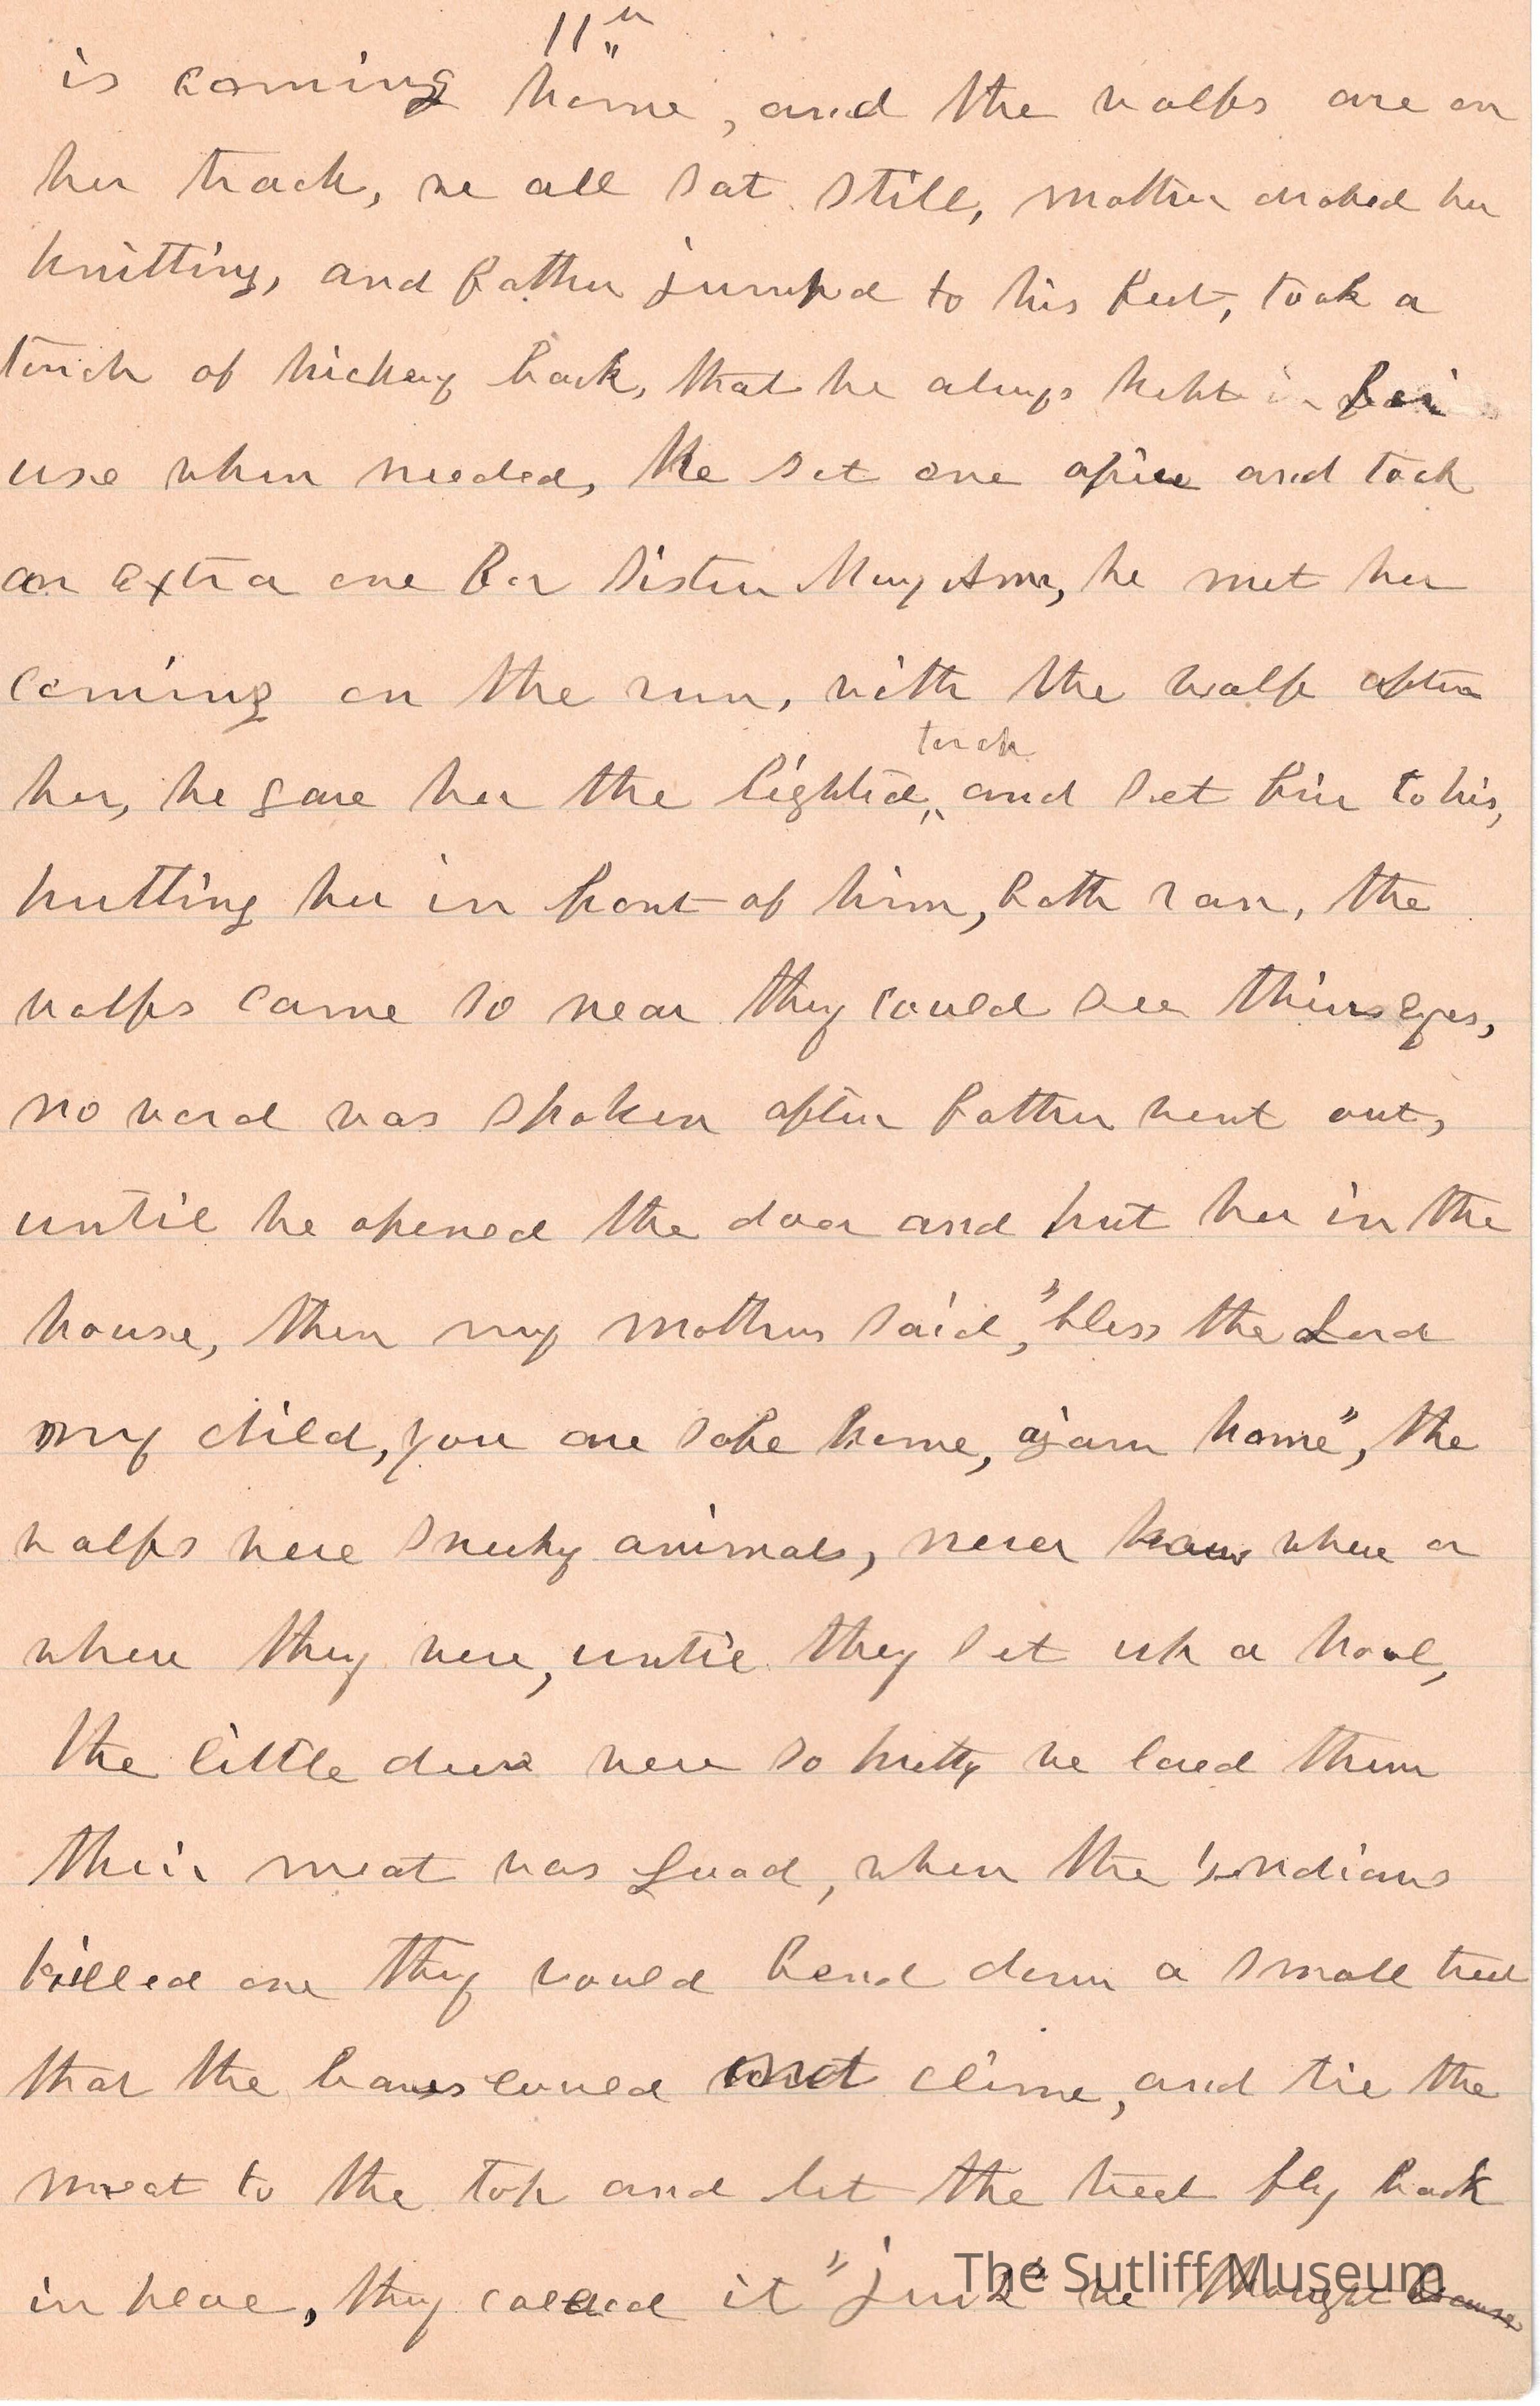 11th
is coming home, and the wolfs are on
her track, we all sat still, mother droped her
knitting, and father jumped to his feet, took a
torch of hickery bark, that he always kept in for
use when needed, He set one afire and took
an extra one for Sister Mary Ann, he met her
coming on the run, with the wolfs after
torch
her, he gave her the lighted, and set fire to his,
putting her in front of him, both ran, the
wolfs came so near they could see their eyes,
no word was spoken after father went out,
until he opened the door and put her in the
house, then my mother said, "bless the Lord
my child, you are safe home, again home", the
wolfs were sneeky animals, never know where or
where they were, until they set up a howl,
the little deers were so pretty we loved them
their meat was good, when the Indians
killed one they would bend down a small tree
that the bears could not clime, and tie the
meat to the top and let the tree fly back
in place, they called it "jurk" we thought because
The Sutliff Museum